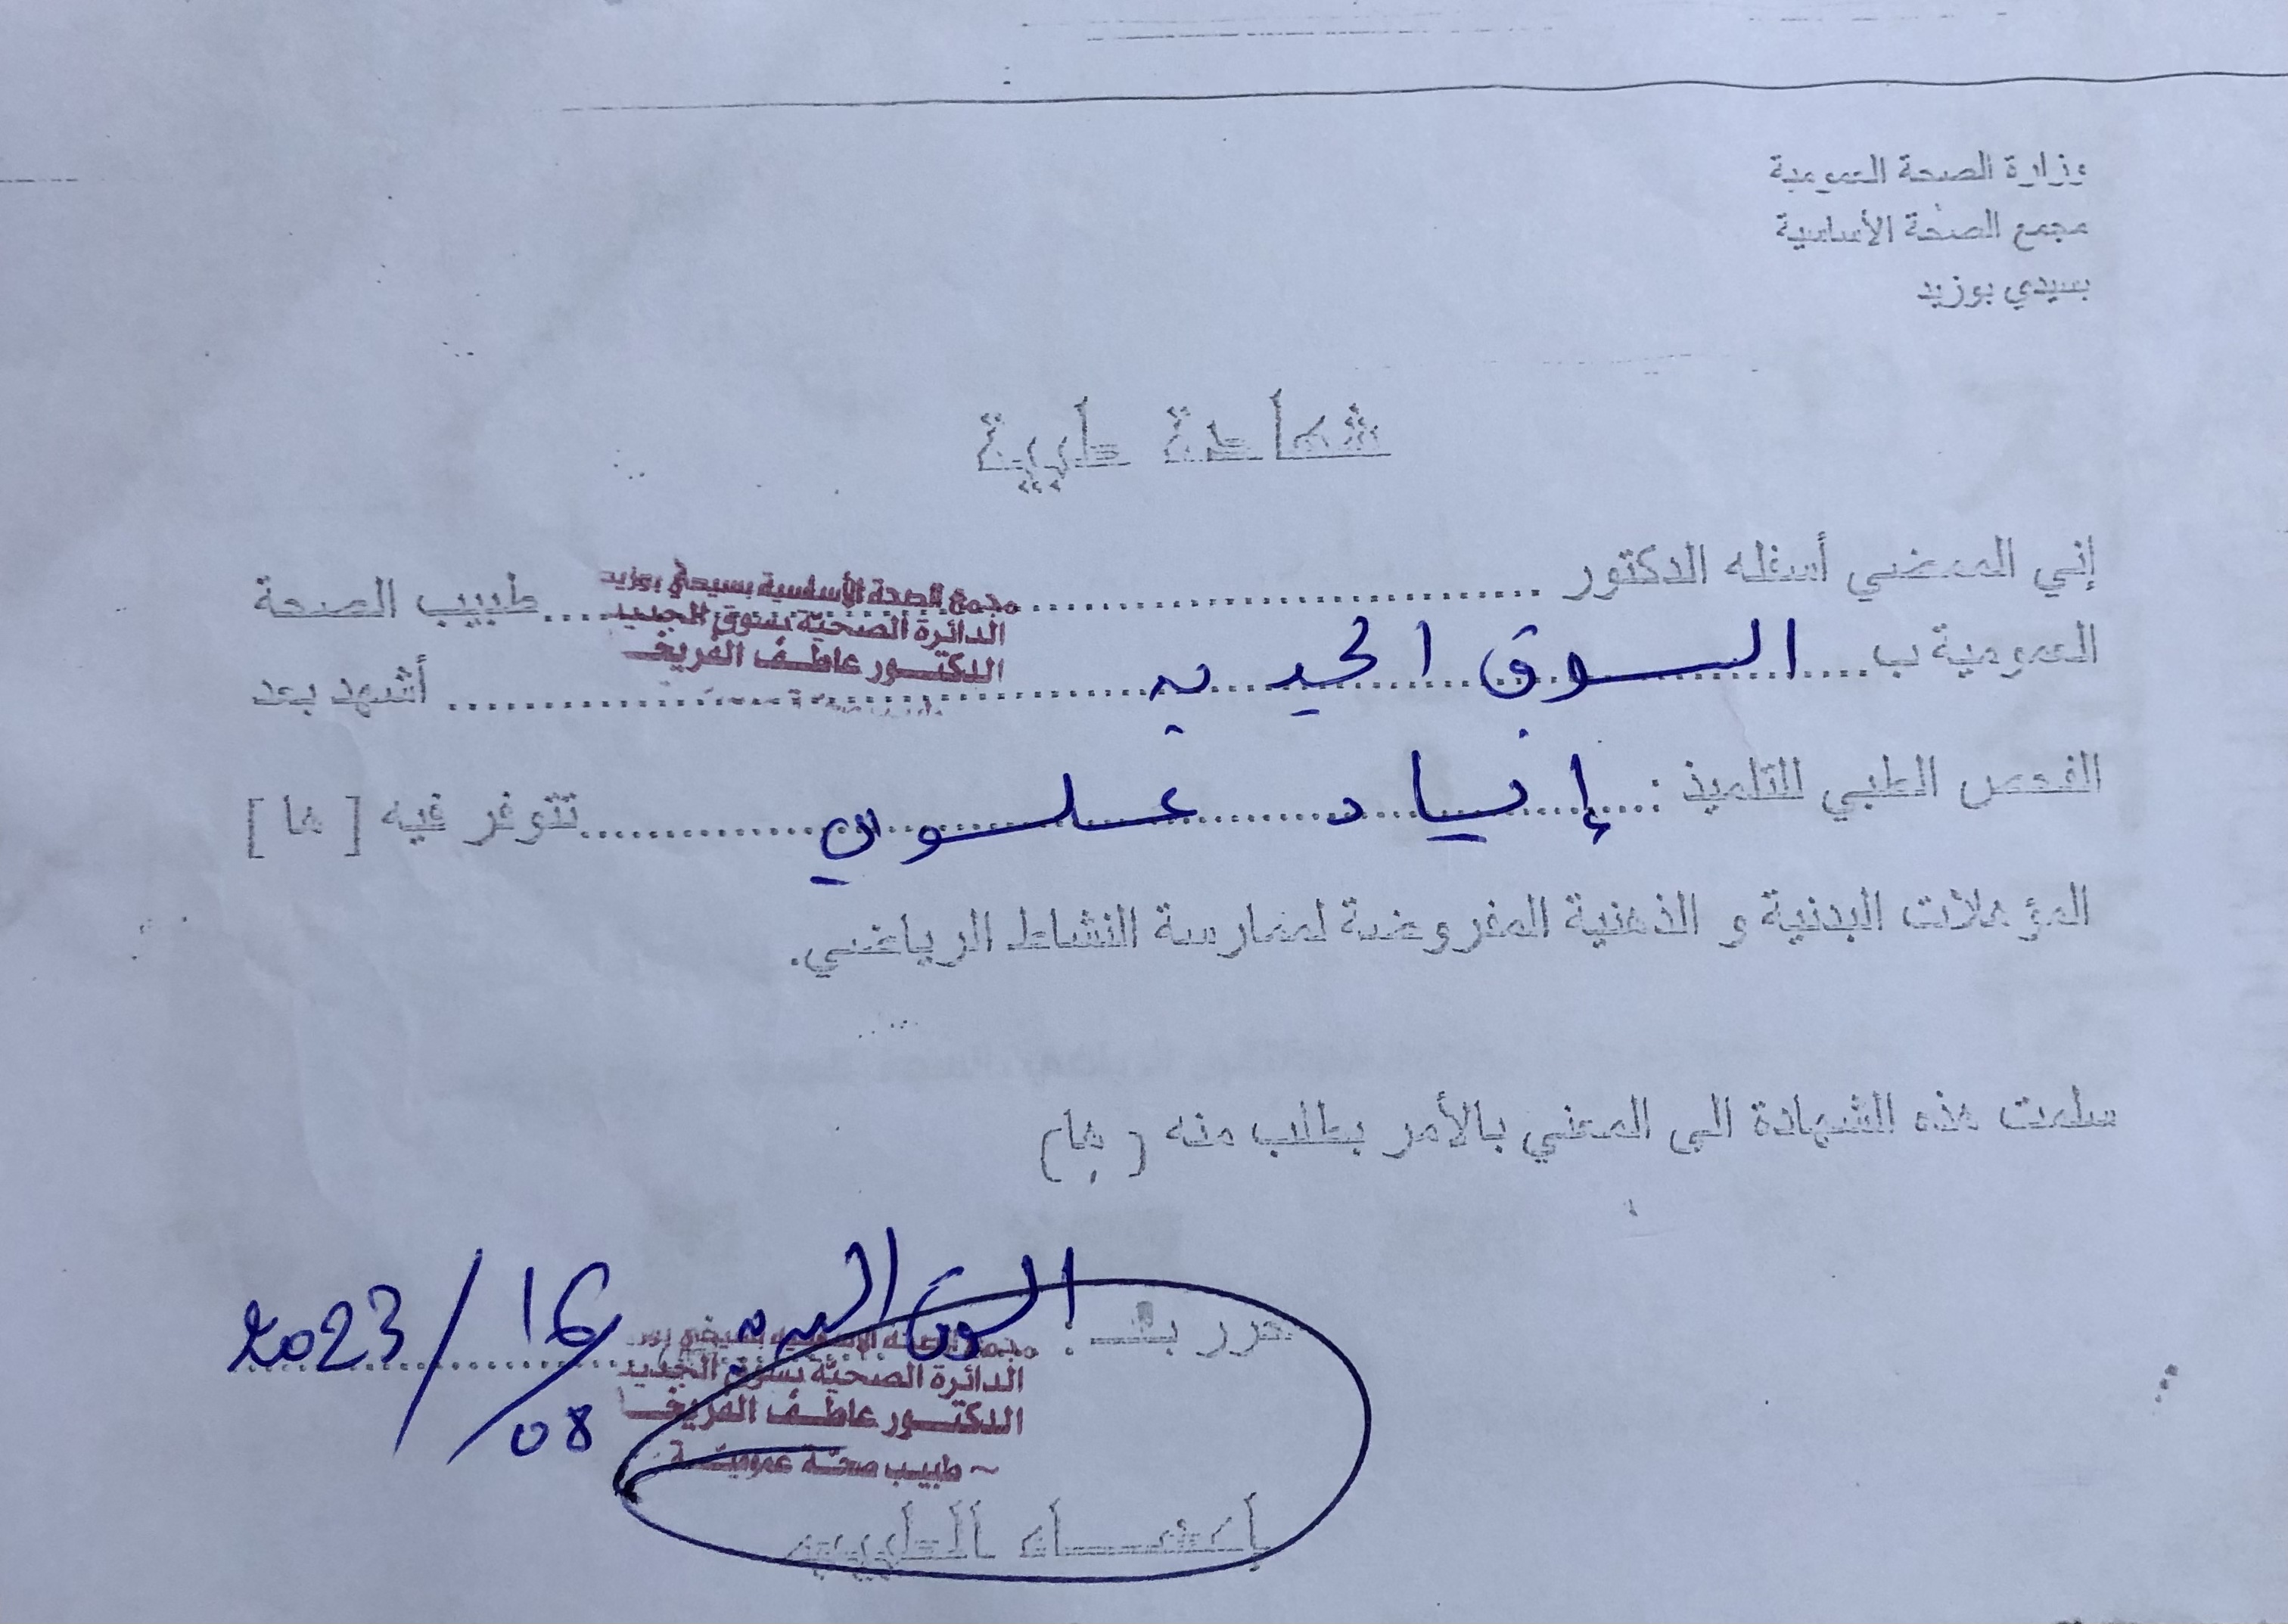 وزارة الصحة العمومية
مجمع الصحة الأساسية
بسيدي بوزيد
شهادة طبية
إني الممضي أسفله الدكتور .......... مجمع الصحة الأساسية بسيدي بوزيد .... طبيب الصحة
الدائرة الصحيّة بسوق الجديد
الدكتور عاطف الفريضي
العمومية ب.... السوق الجديد .......... أشهد بعد
الفحص الطبي للتلميذ : إياد علوي .......... تتوفر فيه [ ها ]
المؤهلات البدنية و الذهنية المفروضة لممارسة النشاط الرياضي.
سلمت هذه الشهادة الى المعني بالأمر بطلب منه ( ها)
حرر بـ : السوق الجديد 16/08/2023
مجمع الصحة الأساسية بسيدي بوزيد
الدائرة الصحيّة بسوق الجديد
الدكتور عاطف
~ طبيب صحة عمومية ~
إمضاء الطبيب